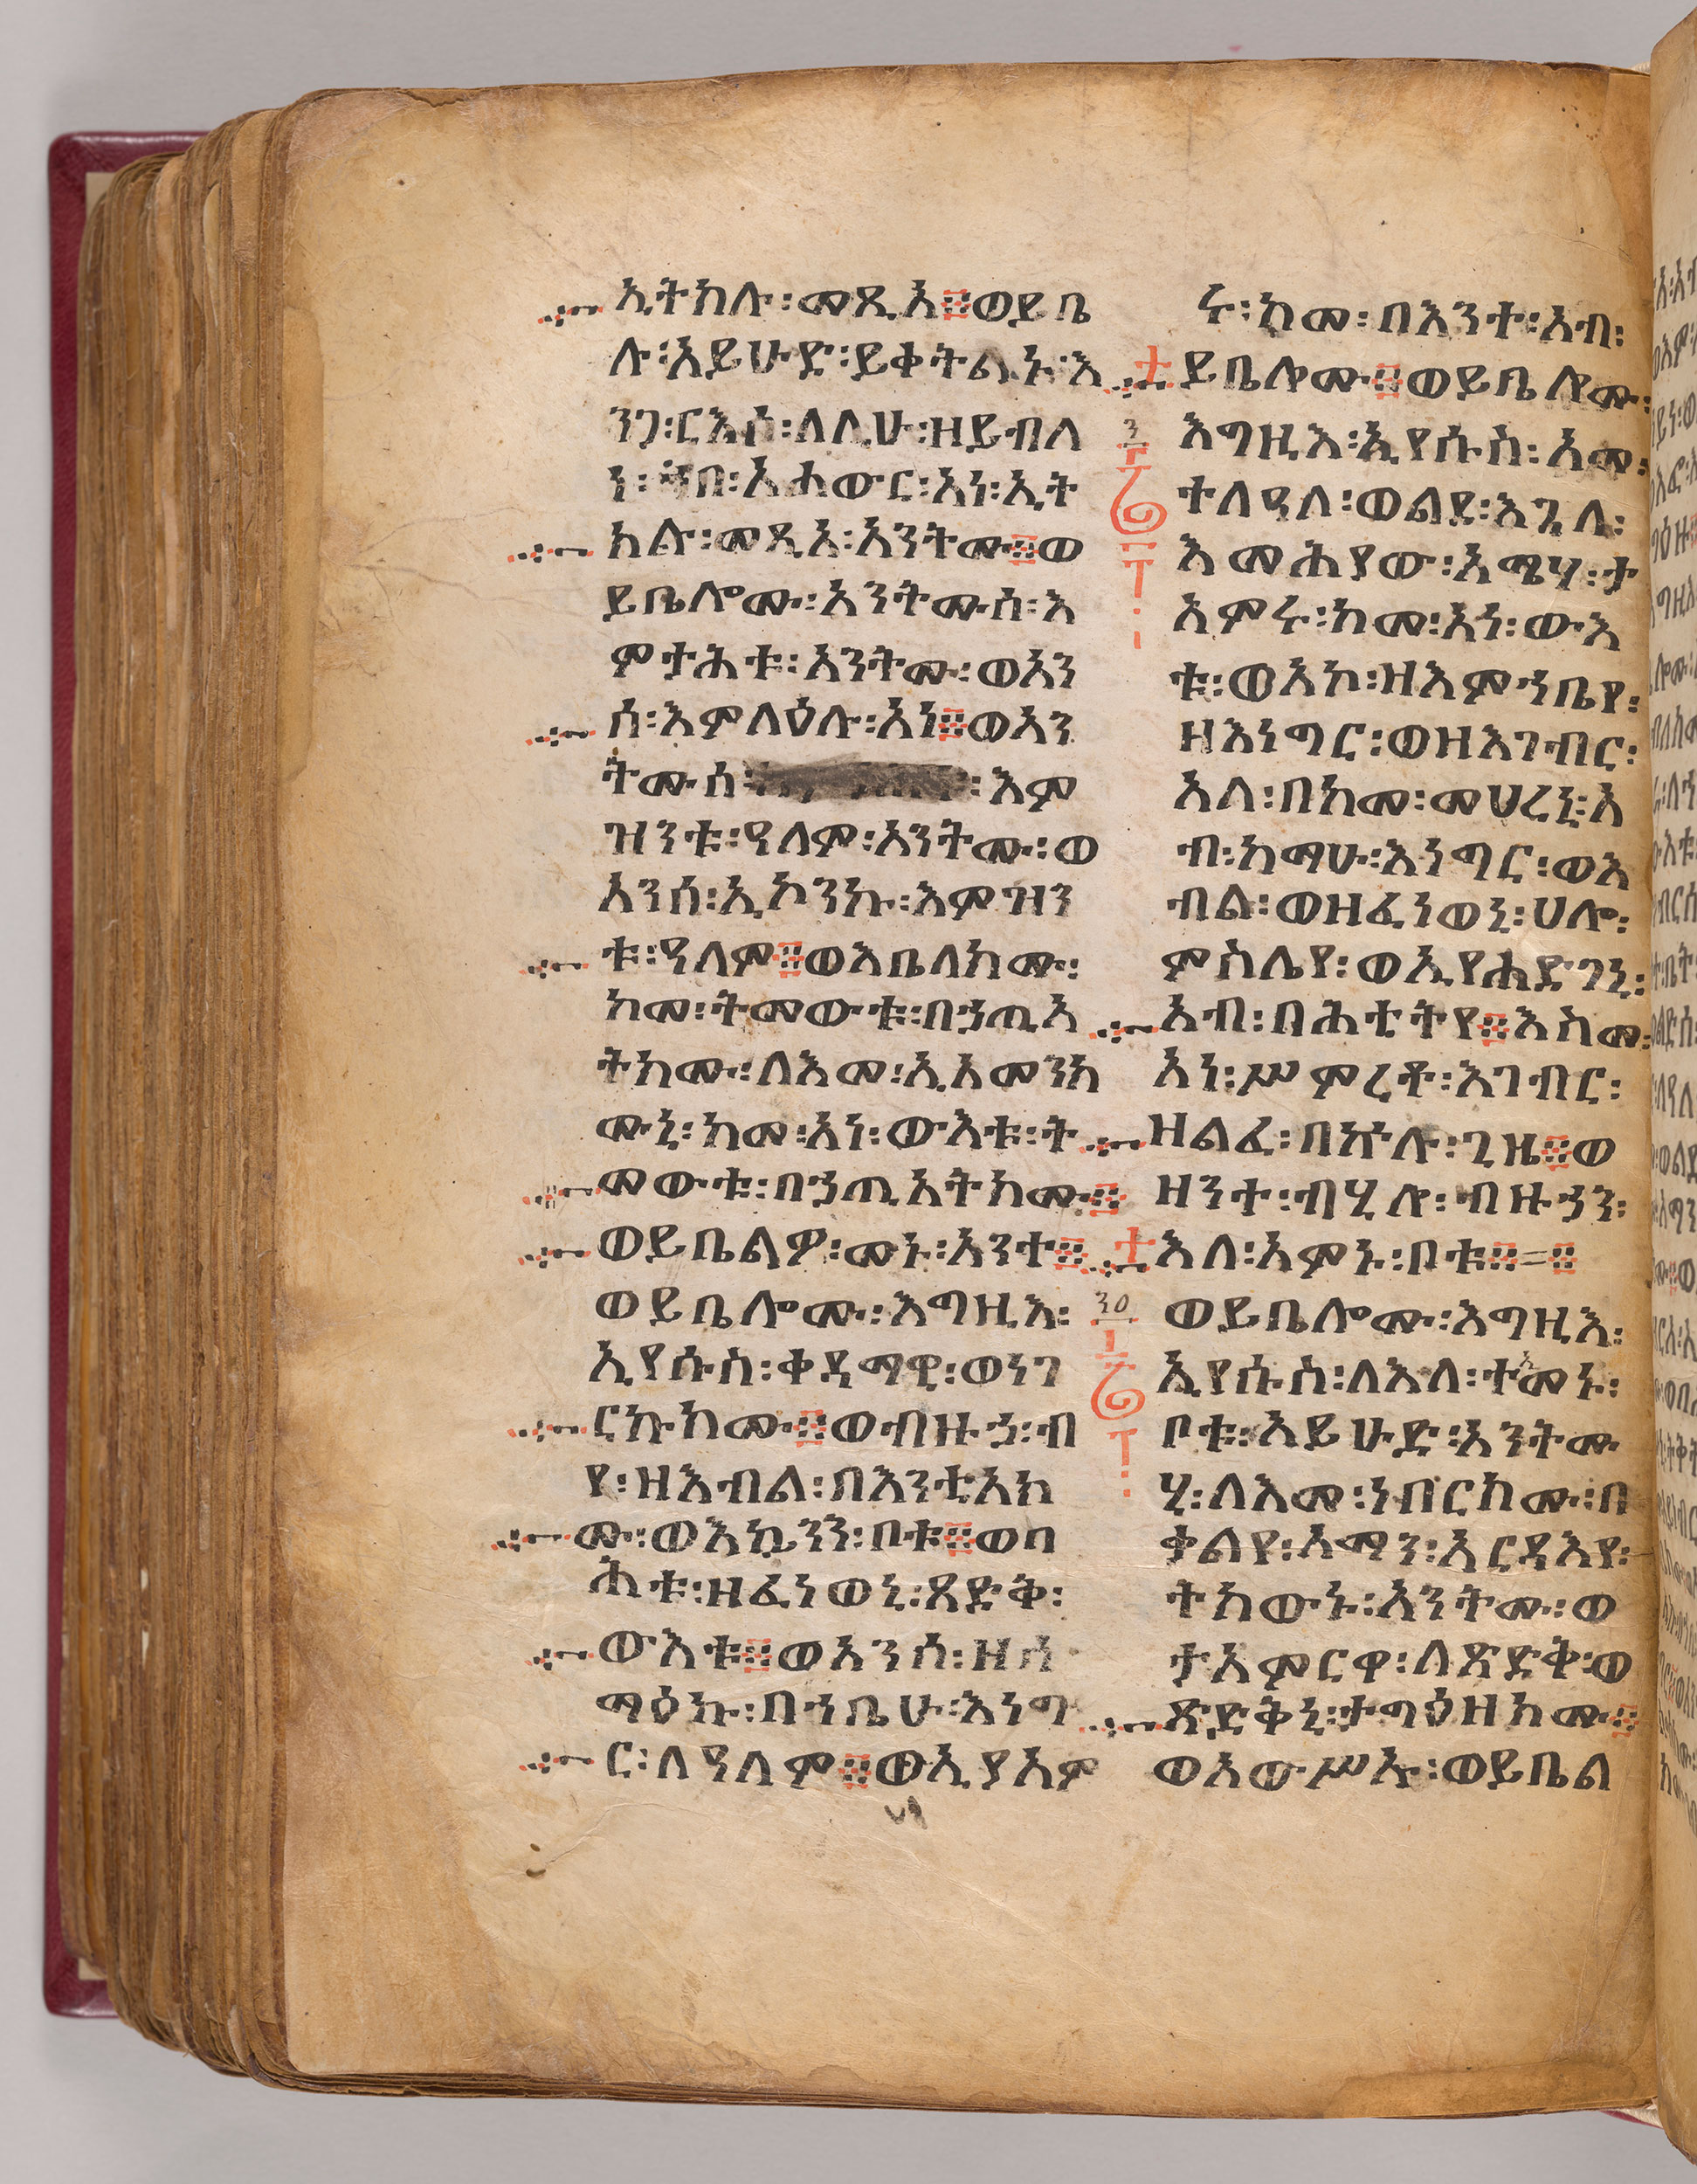 ኢትክሉ፡መጺአ።ወይቤ
ሉ፡አይሁድ፡ይቀትልኑ፡እ
ንጋ፡ርእሰ፡ለሊሁ፡ዘይብለ
ነ፡ኀበ፡አሐውር፡አነ፡ኢት
ክሉ፡መጺአ፡አንትሙ።ወ
ይቤሎሙ፡አንትሙሰ፡እ
ምታሕቱ፡አንትሙ፡ወአን
ሰ፡እምላዕሉ፡አነ።ወአን
ትሙሰ፡እም
ዝንቱ፡ዓለም፡አንትሙ፡ወ
አንሰ፡ኢኮንኩ፡እምዝን
ቱ፡ዓለም።ወእቤለክሙ፡
ከመ፡ትመውቱ፡በኃጢአ
ትክሙ፡ለእመ፡ኢአመንክ
ሙኒ፡ከመ፡አነ፡ውእቱ፡ት
መውቱ፡በኃጢአትክሙ።
ወይቤልዎ፡መኑ፡አንተ።
ወይቤሎሙ፡እግዚእ፡
ኢየሱስ፡ቀዳማዊ፡ወነገ
ርኩክሙ።ወብዙኃ፡ብ
የ፡ዘእብል፡በእንቲአክ
ሙ፡ወእኴንን፡ቦቱ።ወባ
ሕቱ፡ዘፈነወኒ፡ጻድቅ፡
ውእቱ።ወአንሰ፡ዘሰ
ማዕኩ፡በኀቤሁ፡እነግ
ር፡ለዓለም።ወኢያአም
ሩ፡ከመ፡በእንተ፡አብ፡
ይቤሎሙ።ወይቤሎሙ፡
እግዚእ፡ኢየሱስ፡አመ፡
ተለዓለ፡ወልደ፡እጓለ፡
እመሕያው፡አሜሃ፡ታ
አምሩ፡ከመ፡አነ፡ውእ
ቱ፡ወአኮ፡ዘእምኀቤየ፡
ዘእነግር፡ወዘእገብር፡
አላ፡በከመ፡መሀረኒ፡አ
ብ፡ከማሁ፡እነግር፡ወእ
ብል፡ወዘፈነወኒ፡ሀሎ፡
ምስሌየ፡ወኢየሐድገኒ፡
አብ፡በሕቲትየ።እስመ፡
አነ፡ሥምረቶ፡እገብር፡
ዘልፈ፡በኵሉ፡ጊዜ።ወ
ዘንተ፡ብሂሎ፡ብዙኃን፡
እለ፡አምኑ፡ቦቱ።=።
ወይቤሎሙ፡እግዚእ፡
ኢየሱስ፡ለእለ፡ተአመኑ፡
ቦቱ፡አይሁድ፡አንትሙ
ሂ፡ለእመ፡ነበርክሙ፡በ
ቃልየ፡አማን፡አርዳእየ፡
ትከውኑ፡አንትሙ፡ወ
ታአምርዋ፡ለጽድቅ፡ወ
ጽድቅኒ፡ታግዕዘክሙ።
ወአውሥኡ፡ወይቤል